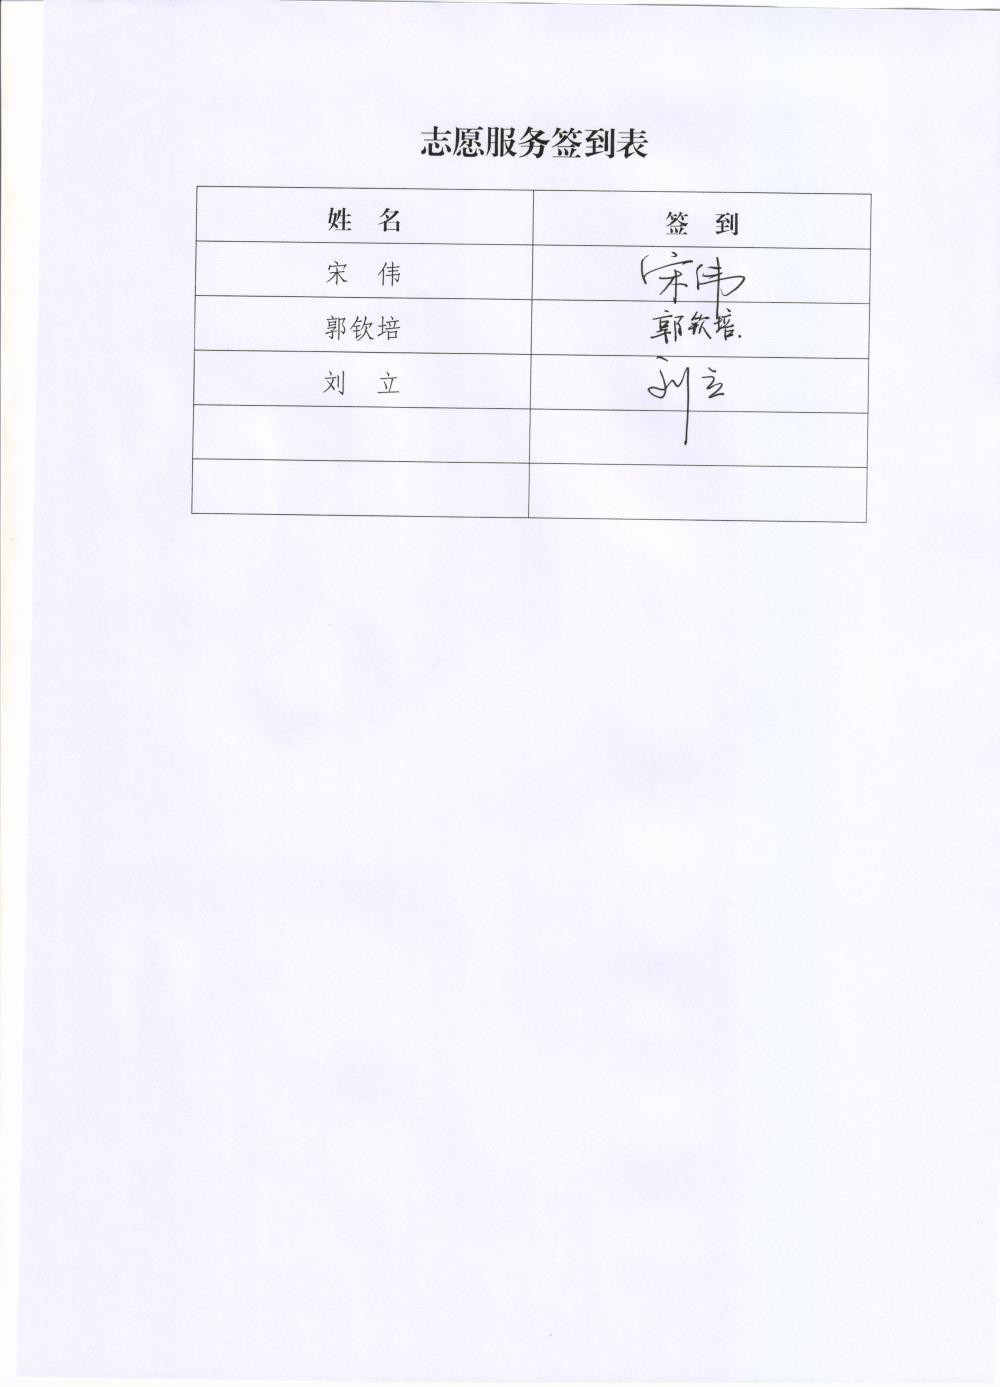 志愿服务签到表
姓 名 签 到
宋 伟 宋伟
郭钦培 郭钦培.
刘 立 刘立